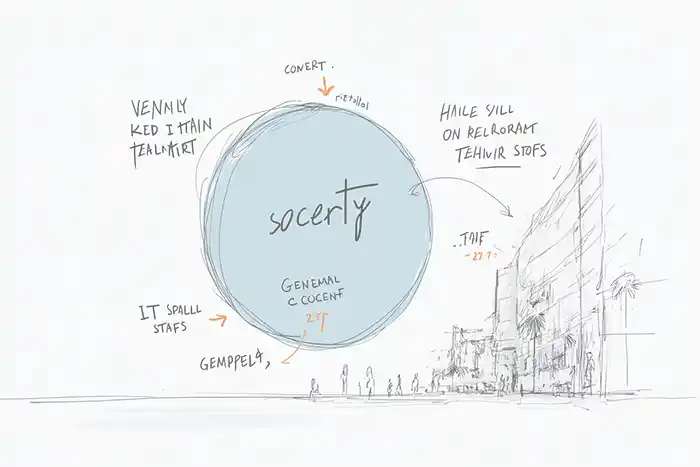 CONERT.
VENNLY
KED I ITAIN
TEALNAIRT
HAILE SYILL
ON RELRORAM
TEHIVIR STOFS
socerty
..TAIF
-27.7.
GENEMAL
C COCENF
IT SPALLL
STAFS
GEMPPEL4,